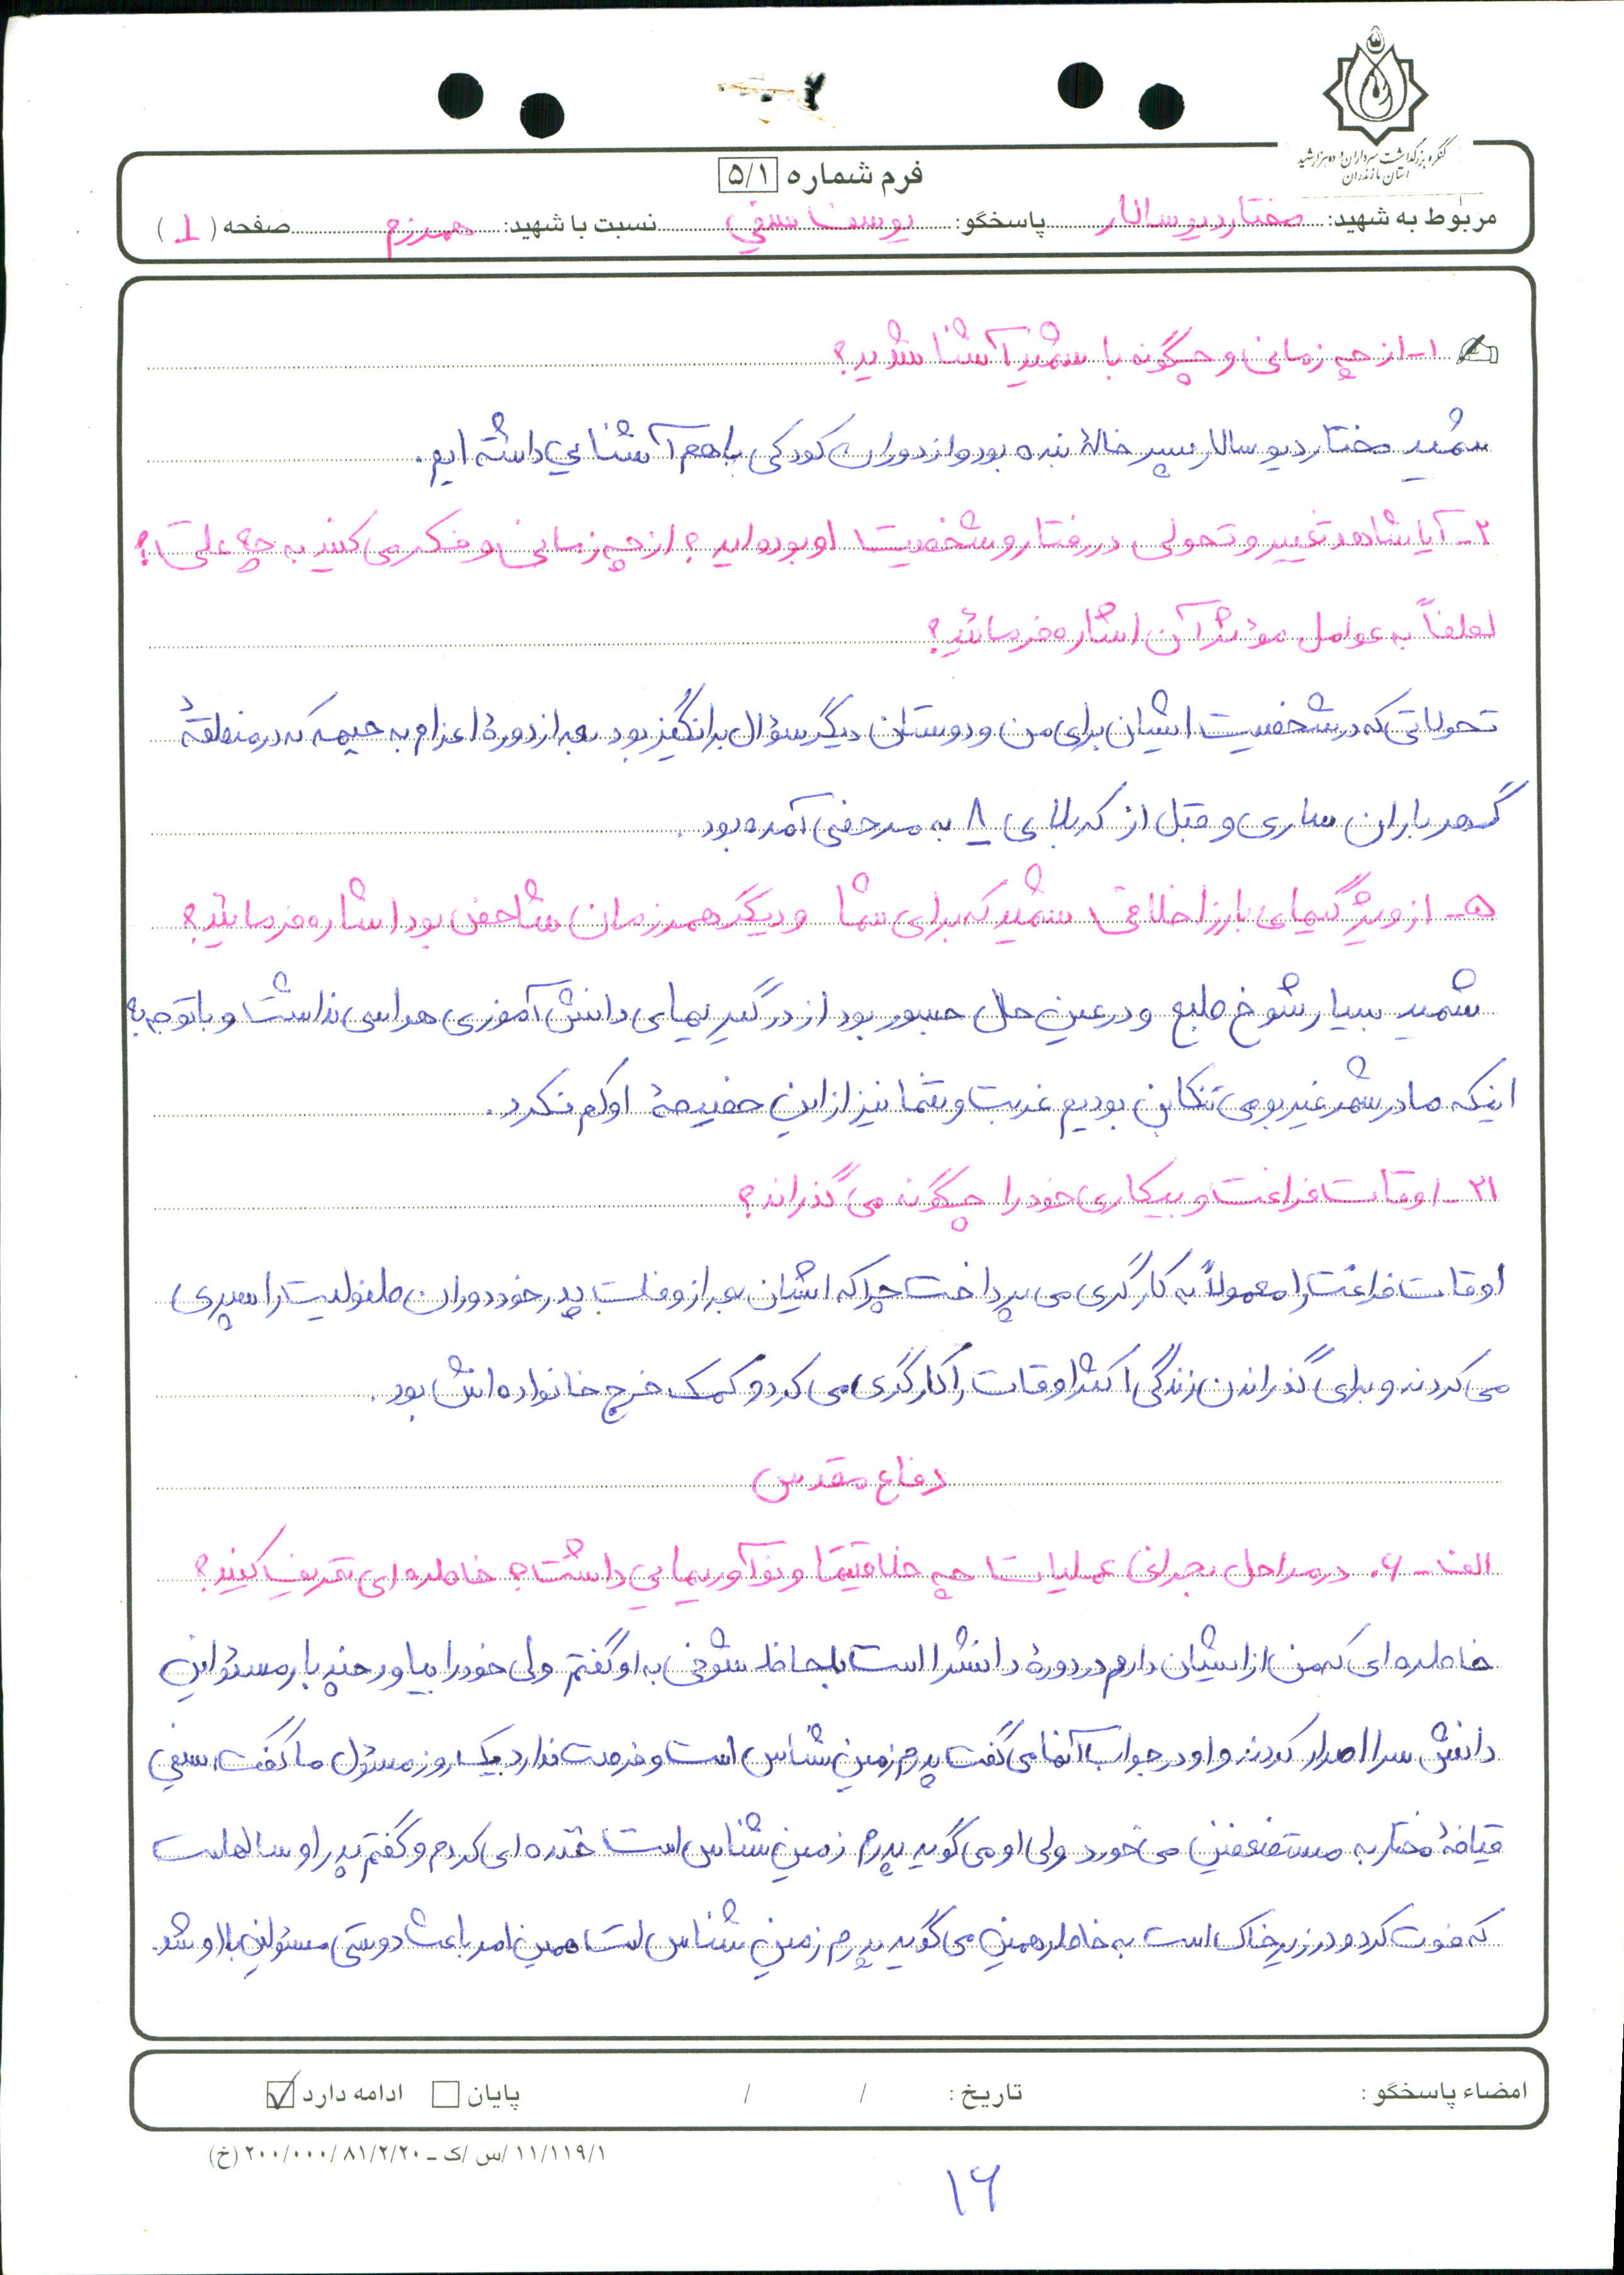 کنگره بزرگداشت سرداران و ده هزار شهید
استان مازندران
فرم شماره ۵/۱
مربوط به شهید: مختار دیوسالار پاسخگو: یوسف سیفی نسبت با شهید: همرزم صفحه (۱)
۱- از چه زمانی و چگونه با شهید آشنا شدید؟
شهید مختار دیوسالار پسر خالهٔ بنده بود و از دوران کودکی با هم آشنایی داشته ایم.
۲- آیا شاهد تغییر و تحولی در رفتار و شخصیت او بوده اید؟ از چه زمانی و فکر می کنید به چه علتی؟
لطفاً به عوامل مؤثر آن اشاره فرمائید؟
تحولاتی که در شخصیت ایشان برای من و دوستان دیگر سؤال برانگیز بود بعد از دورهٔ اعزام به جبهه که در منطقهٔ
گهرباران ساری و قبل از کربلای ۸ به مرخصی آمده بود.
۵- از ویژگیهای بارز اخلاقی شهید که برای شما و دیگر همرزمان شاخص بود اشاره فرمایید؟
شهید بسیار شوخ طبع و در عین حال جسور بود از درگیریهای دانش آموزی هراسی نداشت و با توجه به
اینکه ما در شهر غیر بومی تنکابن بودیم غربت و تنها نیز از این خصیصهٔ او کم نکرد.
۲۱- اوقات فراغت و بیکاری خود را چگونه می گذراند؟
اوقات فراغت را معمولاً به کارگری می پرداخت چرا که ایشان بعد از وفات پدر خود دوران طفولیت را سپری
می کردند و برای گذراندن زندگی اکثر اوقات را کارگری می کرد و کمک خرج خانواده اش بود.
دفاع مقدس
الف - ۶. در مراحل بحرانی عملیات چه خلاقیتها و نوآوریهایی داشت؟ خاطره ای تعریف کنید؟
خاطره ای که من از ایشان دارم در دورهٔ دانشسرا است بلحاظ شوخی به او گفتم ولی خود را بیاور چند بار مسئولین
دانش سرا اصرار کردند و او در جواب آنها می گفت پدرم زمین شناس است و فرصت ندارد یک روز مسئول ما گفت سیفی
قیافهٔ مختار به مستضعفین می خورد ولی او می گوید پدرم زمین شناس است خنده ای کردم و گفتم پدر او سالهاست
که فوت کرد و در زیر خاک است به خاطر همین می گوید پدرم زمین شناس است همین امر باعث دوستی مسئولین با او شد.
امضاء پاسخگو: تاریخ: / / پایان ادامه دارد
۱۱/۱۱۹/۱/س/ک - ۲۰۰/۰۰۰/۸۱/۲/۲۰ (خ)
۱۶